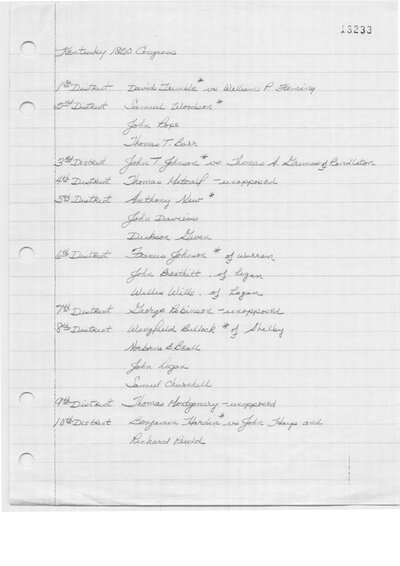 13233
Kentucky 1820 Congress
1st District David Trimble * vs William P. Fleming
2nd District Samuel Woodson *
John Pope
Thomas T. Barr
3rd District John T Johnson * vs Thomas A. Grimes of Pendleton
4th District Thomas Metcalf - unopposed
5th District Anthony New *
John Daviess
Dickson Given
6th District Francis Johnson * of Warren
John Breathitt, of Logan
Willis Wills, of Logan
7th District George Robinson - unopposed
8th District Wingfield Bullock * of Shelby
Norborne B. Beall
John Logan
Samuel Churchill
9th District Thomas Montgomery - unopposed
10th District Benjamin Hardin * vs John Hays and
Richard Rudd